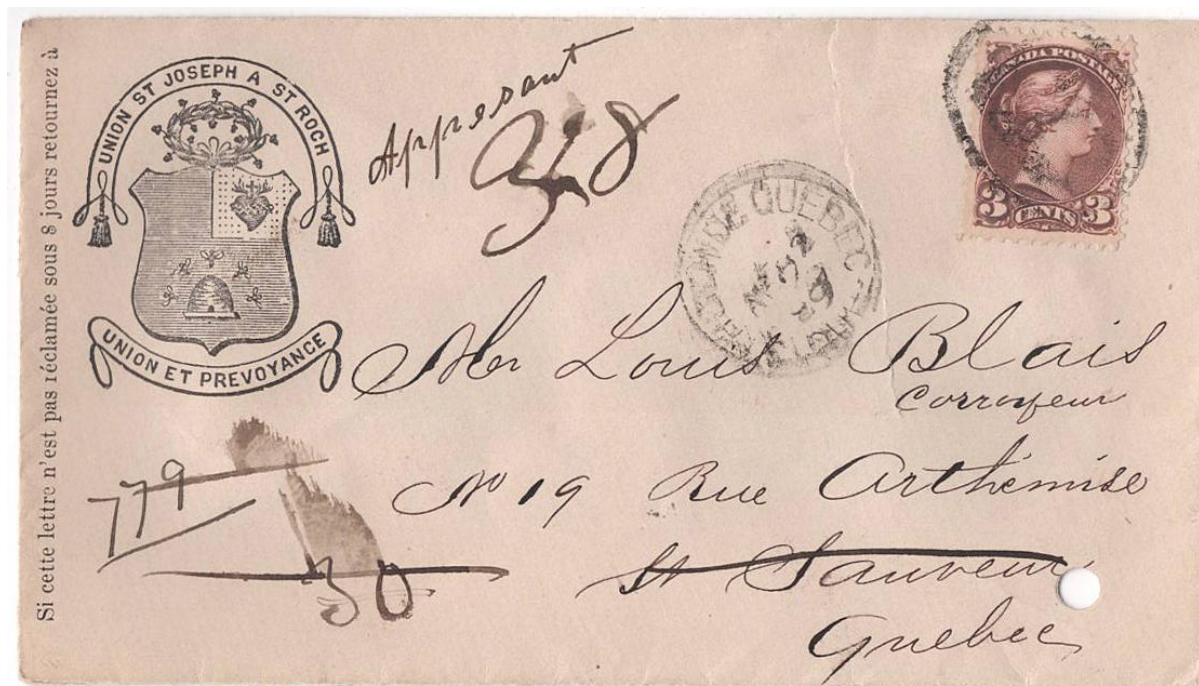 Si cette lettre n'est pas réclamée sous 8 jours retournez à
UNION ST JOSEPH A ST ROCH
UNION ET PREVOYANCE
CANADA POSTAGE
3 CENTS 3
QUEBEC
Mr Louis Blais
Corroyeur
No 19 Rue Arthémise
St Sauveur
Quebec
779
30